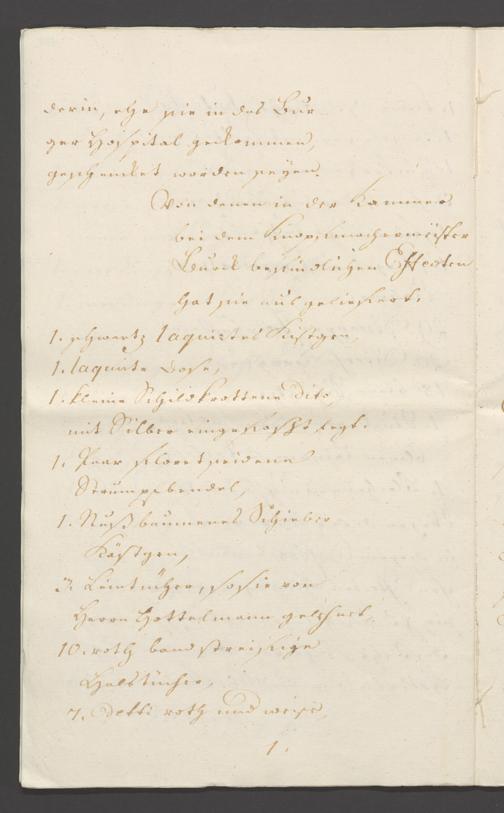 derin, ehe sie in das Bur
ger Hospital gekommen,
geschencket worden seyen.
Von denen in der Kammer
bei dem Knopfmachermeister
Burck befindlichen Effecten
hat sie ausgeliefert.
1. schwartz laquirtes Kistgen,
1. laquirte Dose,
1. kleine Schildkrottene dito,
mit Silber eingefasst
1. Paar floretseidene
Strumpfbendel,
1. Nußbaumenes Schieber
Kästgen,
Leintücher, so sie von
Herrn Hottelmann gelehnet,
10. roth band streifige
Halstücher,
7. detti roth und weise,
1.